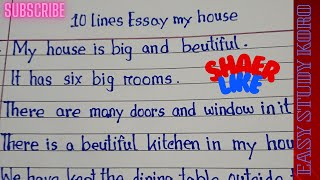 SUBSCRIBE
10 Lines Essay my house
My house is big and beutiful.
It has six big rooms.
SHAER
LIKE
There are many doors and window in it
There is a beutiful kitchen in my hou
We have kept the dining table outside
EASY STUDY KORO